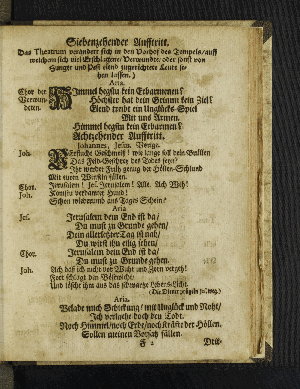 Siebenzehender Aufftritt.
Das Theatrum verändert sich in den Vorhof des Tempels/auff
welchem sich viel Erschlagene/ Verwundte/ oder sonst von
Hunger und Pest elend zugerichtete Leute se-
hen lassen.)
Aria.
Chor der Verwundeten.
Himmel hegstu kein Erbarmen?
Höchster hat dein Grimm kein Ziel?
Elend treibt ein Unglücks-Spiel
Mit uns Armen.
Himmel hegstu kein Erbarmen?
Achtzehender Aufftritt.
Johannes, Jesus,
Joh.
wie lange soll dein
Das Feld-Geschrey des Todes seyn?
der Höllen-Schlund
Mit euern füllen.
Chor. Jerusalem! Jes. Jerusalem! Alle. Ach Weh!
Joh. verdamter Hund!
Schon wiederumb ans Tages Schein?
Aria
Jes. Jerusalem dein End ist da/
Du must zu Grunde gehen/
Dein allerletzter Tag ist nah/
Du wirst ihn
Chor. Jerusalem dein End ist da/
Du must zu Grunde gehen.
Joh. Ach daß ich nicht vor Wuht und Zorn vergeh!
Fort schlagt den Bösewicht/
Und lösche ihm aus das schwartze Lebens-Licht.
(Die Diener prügeln
Aria.
Belade mich Schickung! mit Unglück und Noht/
Ich verlache doch den Todt.
Noch Himmel/noch Erde/noch Kräffte der Höllen.
Sollen meinen Vorsatz fällen.